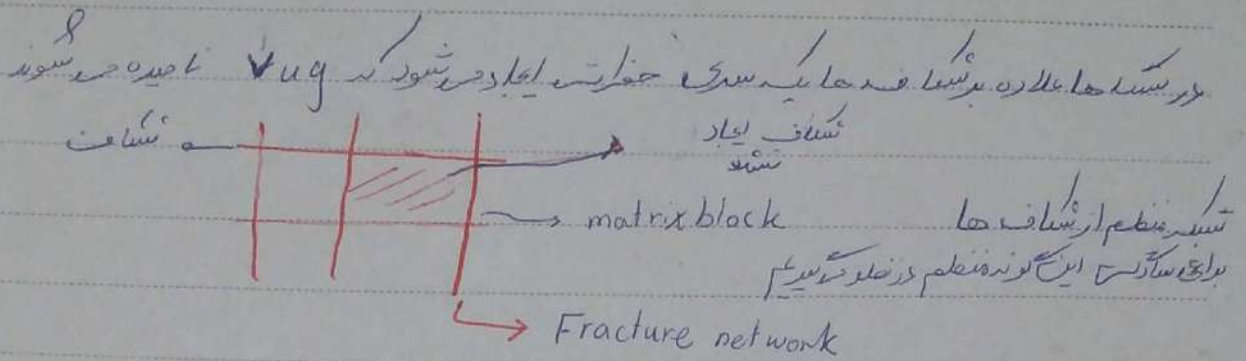 در سنگ ها علاوه بر شکاف ها یک سری حفراتی ایجاد می شود که Vug نامیده می شوند
شکاف
شکاف ایجاد
نشده
matrix block
شبکه منظم از شکاف ها
برای سادگی این گونه منظم در نظر می گیریم
Fracture network